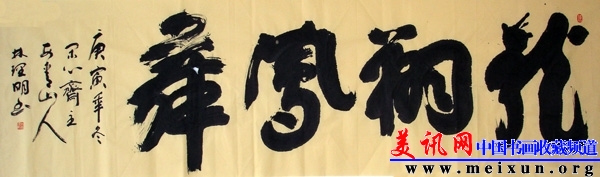 龍翔鳳舞
庚寅年冬
心齋主
青山人
林理明书
美讯网 中国书画收藏频道
www.meixun.org